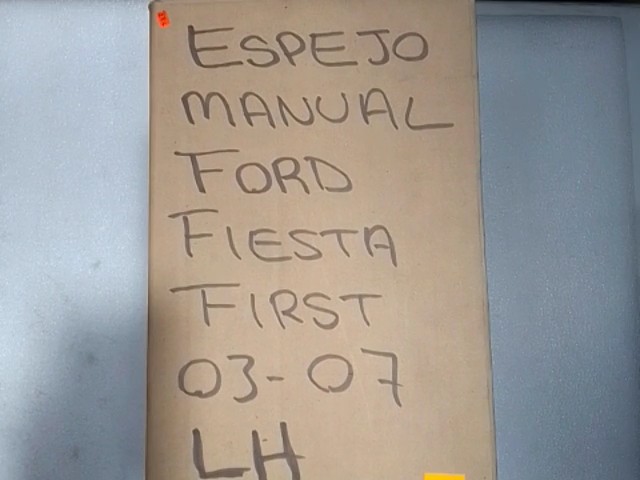 ESPEJO
MANUAL
FORD
FIESTA
FIRST
03-07
LH